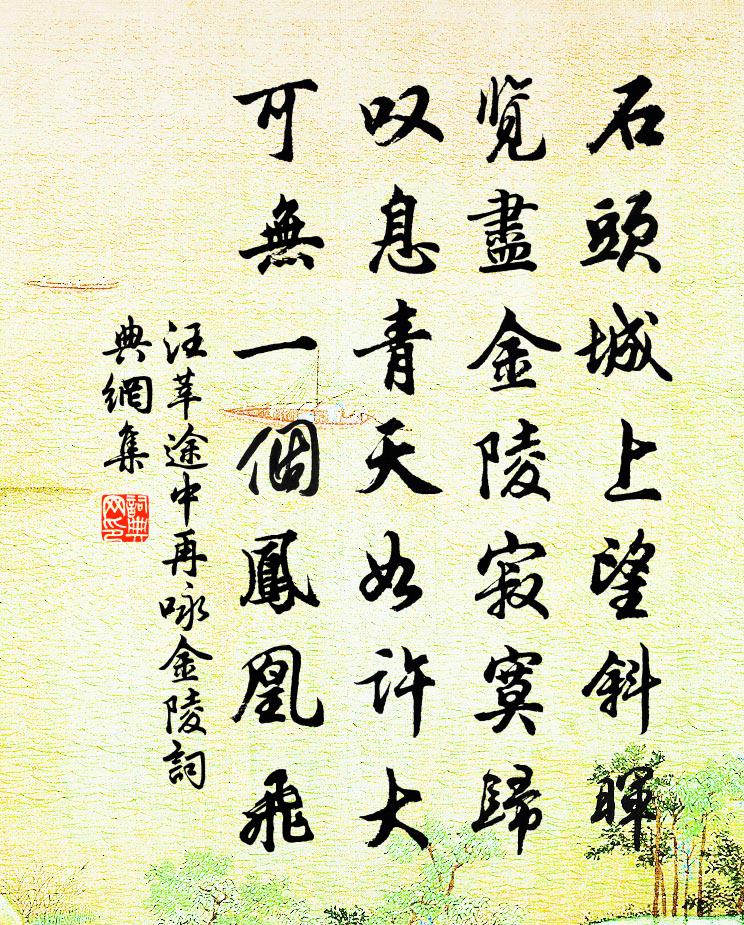 石頭城上望斜暉
覽盡金陵寂寞歸
叹息青天如許大
可無一個鳳凰飛
汪莘途中再咏金陵詞
典網集
詞典
网印